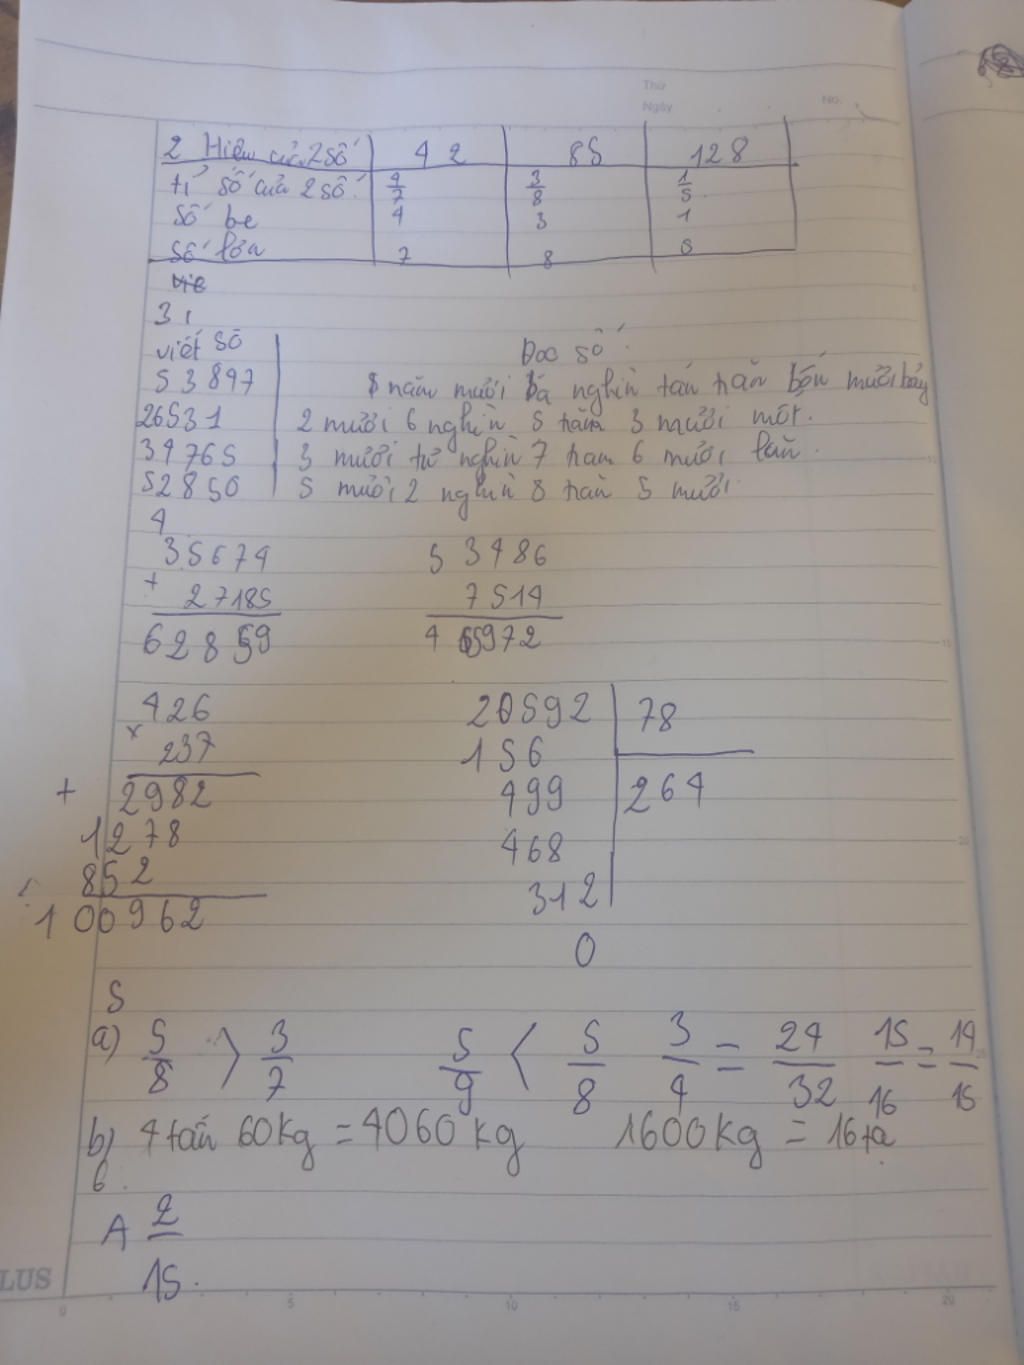 Thứ
Ngày No.
2 Hiệu của 2 số 42 85 128
tỉ số của 2 số 4/7 3/8 1/5
số be 4 3 1
số lớn 7 8 5
3,
viết số Đọc số
53897 năm mười ba nghìn tán trăn bốn mười bảy
26531 2 mười 6 nghìn 5 trăm 3 mười môt.
34765 3 mười tư nghìn 7 tram 6 mười lăn.
52850 5 mười 2 nghìn 8 trăn 5 mười.
4
35674 53486
+ 27185 7514
62859 45972
426 20592 78
x 237 156
+ 2982 499 264
1278 468
852 312
100962 0
5
a) 5/8 > 3/7 5/9 < 5/8 3/4 = 24/32 15/16 = 14/15
b) 4 tấn 60kg = 4060kg 1600kg = 16 tạ
6.
A 2/15.
LUS
0 5 10 15 20